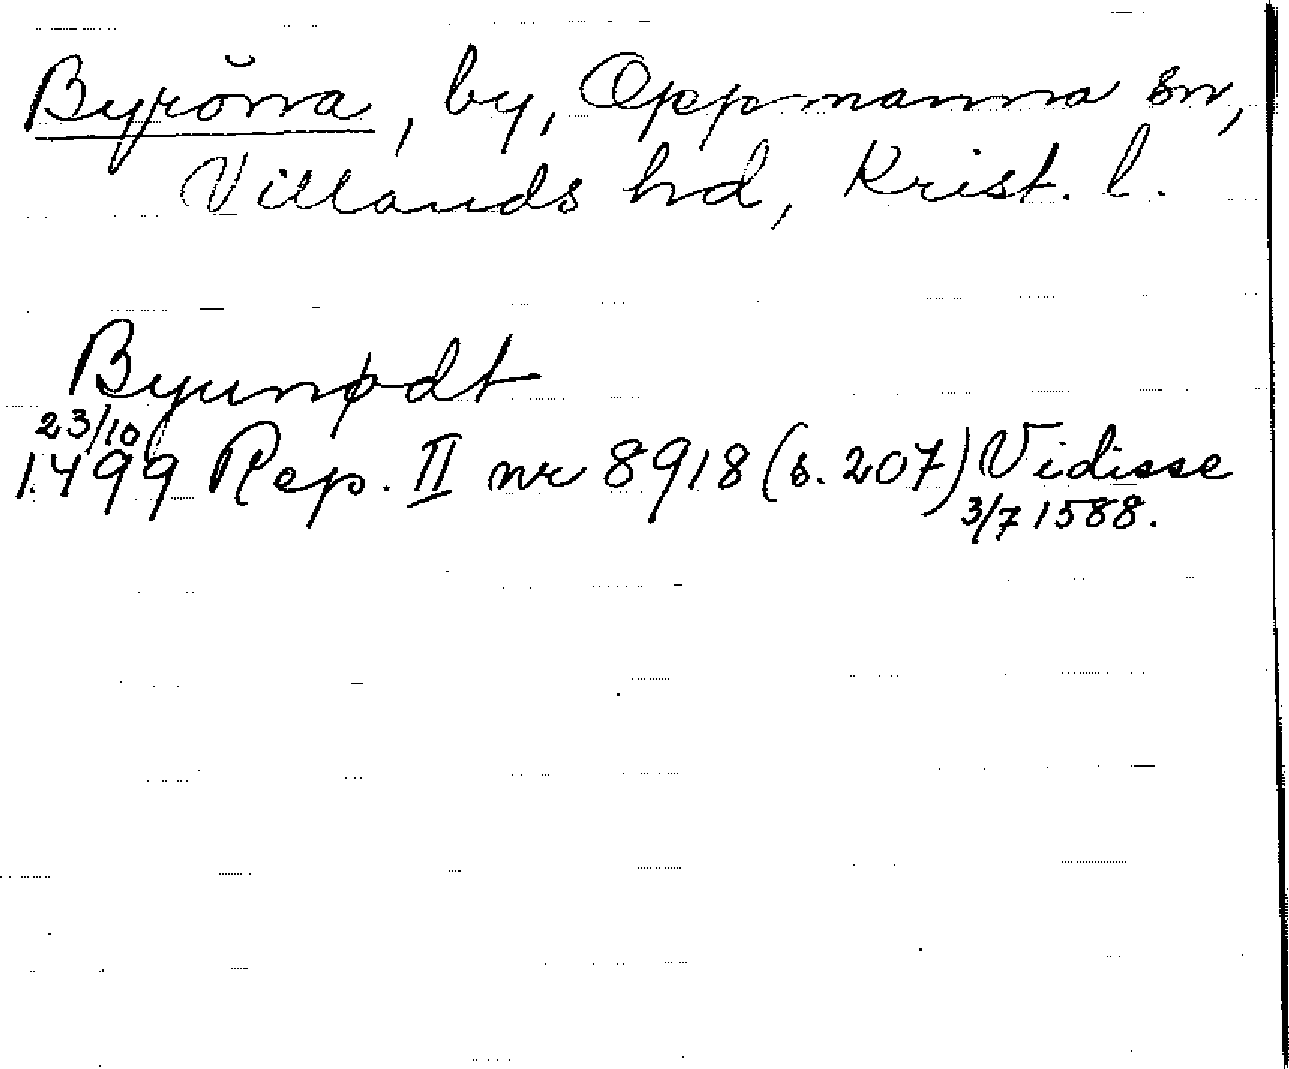 Byröŭra, by, Oppmanna sn,
Villands hd, Krist. l.
Byurødt
23/10
1499 Rep. II nr 8918 (s. 207) Vidisse
3/7 1588.